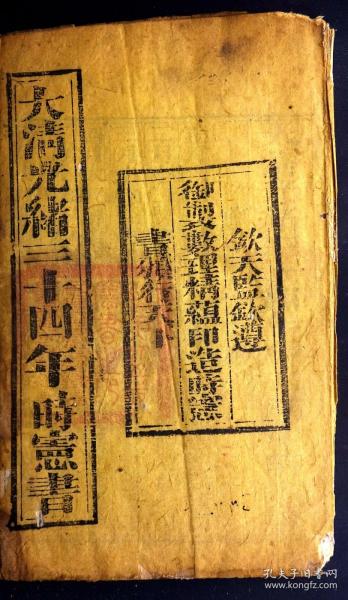 大清光緒三十四年時憲書
欽天監欽遵
御製數理精蘊印造時憲
書頒行天下
孔夫子旧书网
www.kongfz.com